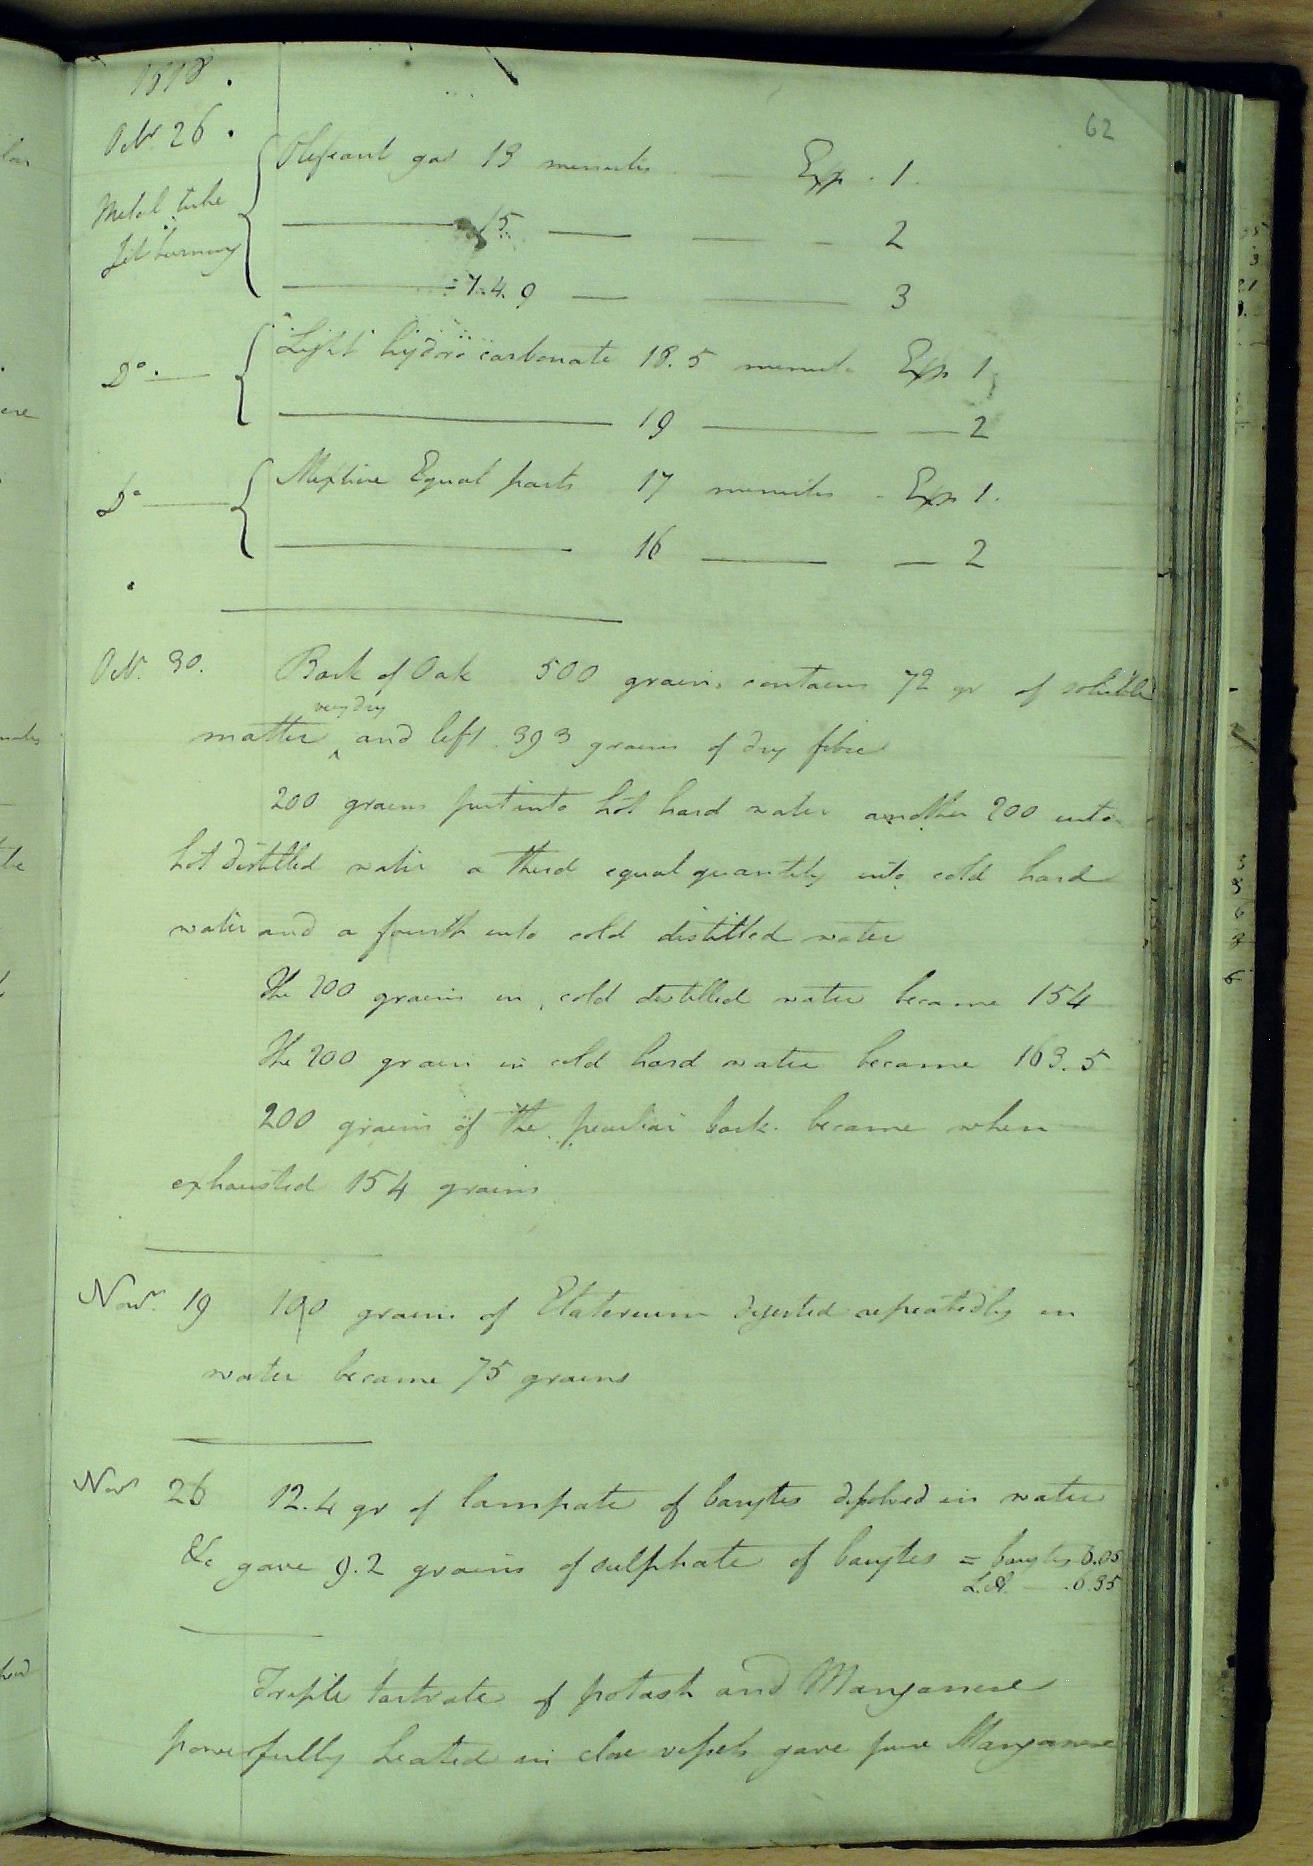 62
1818.
Octr 26.
Metal tube
Jet burning
Olefiant gas 13 minutes — Exp. 1.
15 — — — 2
= 7.4.9 — — 3
Do — Light hydro carbonate 18.5 minute Exp 1
19 — — 2
Do — Mixture Equal parts 17 minutes - Exp 1.
16 — — 2
Octr. 30. Bark of Oak 500 grains contains 72 gr of soluble
very dry
matter ^ and left 393 grains of dry fibre
200 grains put into hot hard water another 200 into
hot distilled water a third equal quantity into cold hard
water and a fourth into cold distilled water
The 200 grains in cold distilled water became 154
The 200 grain in cold hard water became 163.5
200 grains of the peculiar bark became when
exhausted 154 grains
Novr. 19 100 grains of Elaterium digested repeatedly in
water became 75 grains
Novr 26 12.4 gr of lampate of barytes dissolved in water
&c gave 9.2 grains of sulphate of barytes = barytes 6.05
L.A. — 6.35
Triple tartrate of potash and Manganese
powerfully heated in close vessels gave pure Manganese